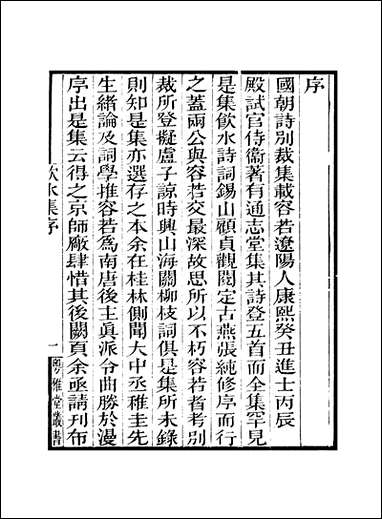 序
國朝詩別裁集載容若遼陽人康熙癸丑進士丙辰
殿試官侍衞著有通志堂集其詩登五首而全集罕見
是集飲水詩詞錫山顧貞觀閱定古燕張純修序而行
之蓋兩公與容若交最深故思所以不朽容若者考別
裁所登擬盧子諒時興山海關柳枝詞俱是集所未錄
則知是集亦選存之本余在桂林側聞大中丞稚圭先
生緒論及詞學推容若為南唐後主眞派令曲勝於漫
序出是集云得之京師廠肆惜其後闕頁余亟請刊布
飲水集序
一
粤雅堂叢書